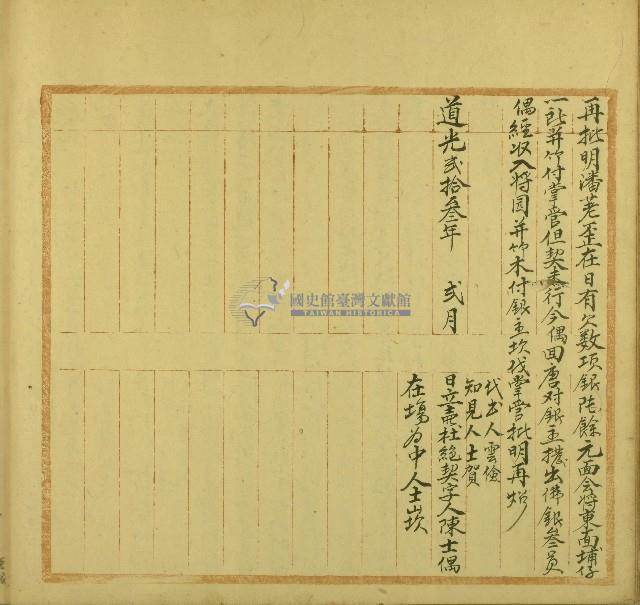 再批明潘荖歪在日有欠数項銀陆餘元面会将東面埔仔
一段并竹付掌管但契未行今偶回唐对銀主摧出佛銀叁員
偶經収入将园并竹木付銀主坎伐掌管批明再炤
代书人雲儉
知見人士賀
道光弍拾叁年 弍月 日立壳杜絶契字人陳士偶
在塲为中人士崁
國史館臺灣文獻館
TAIWAN HISTORICA